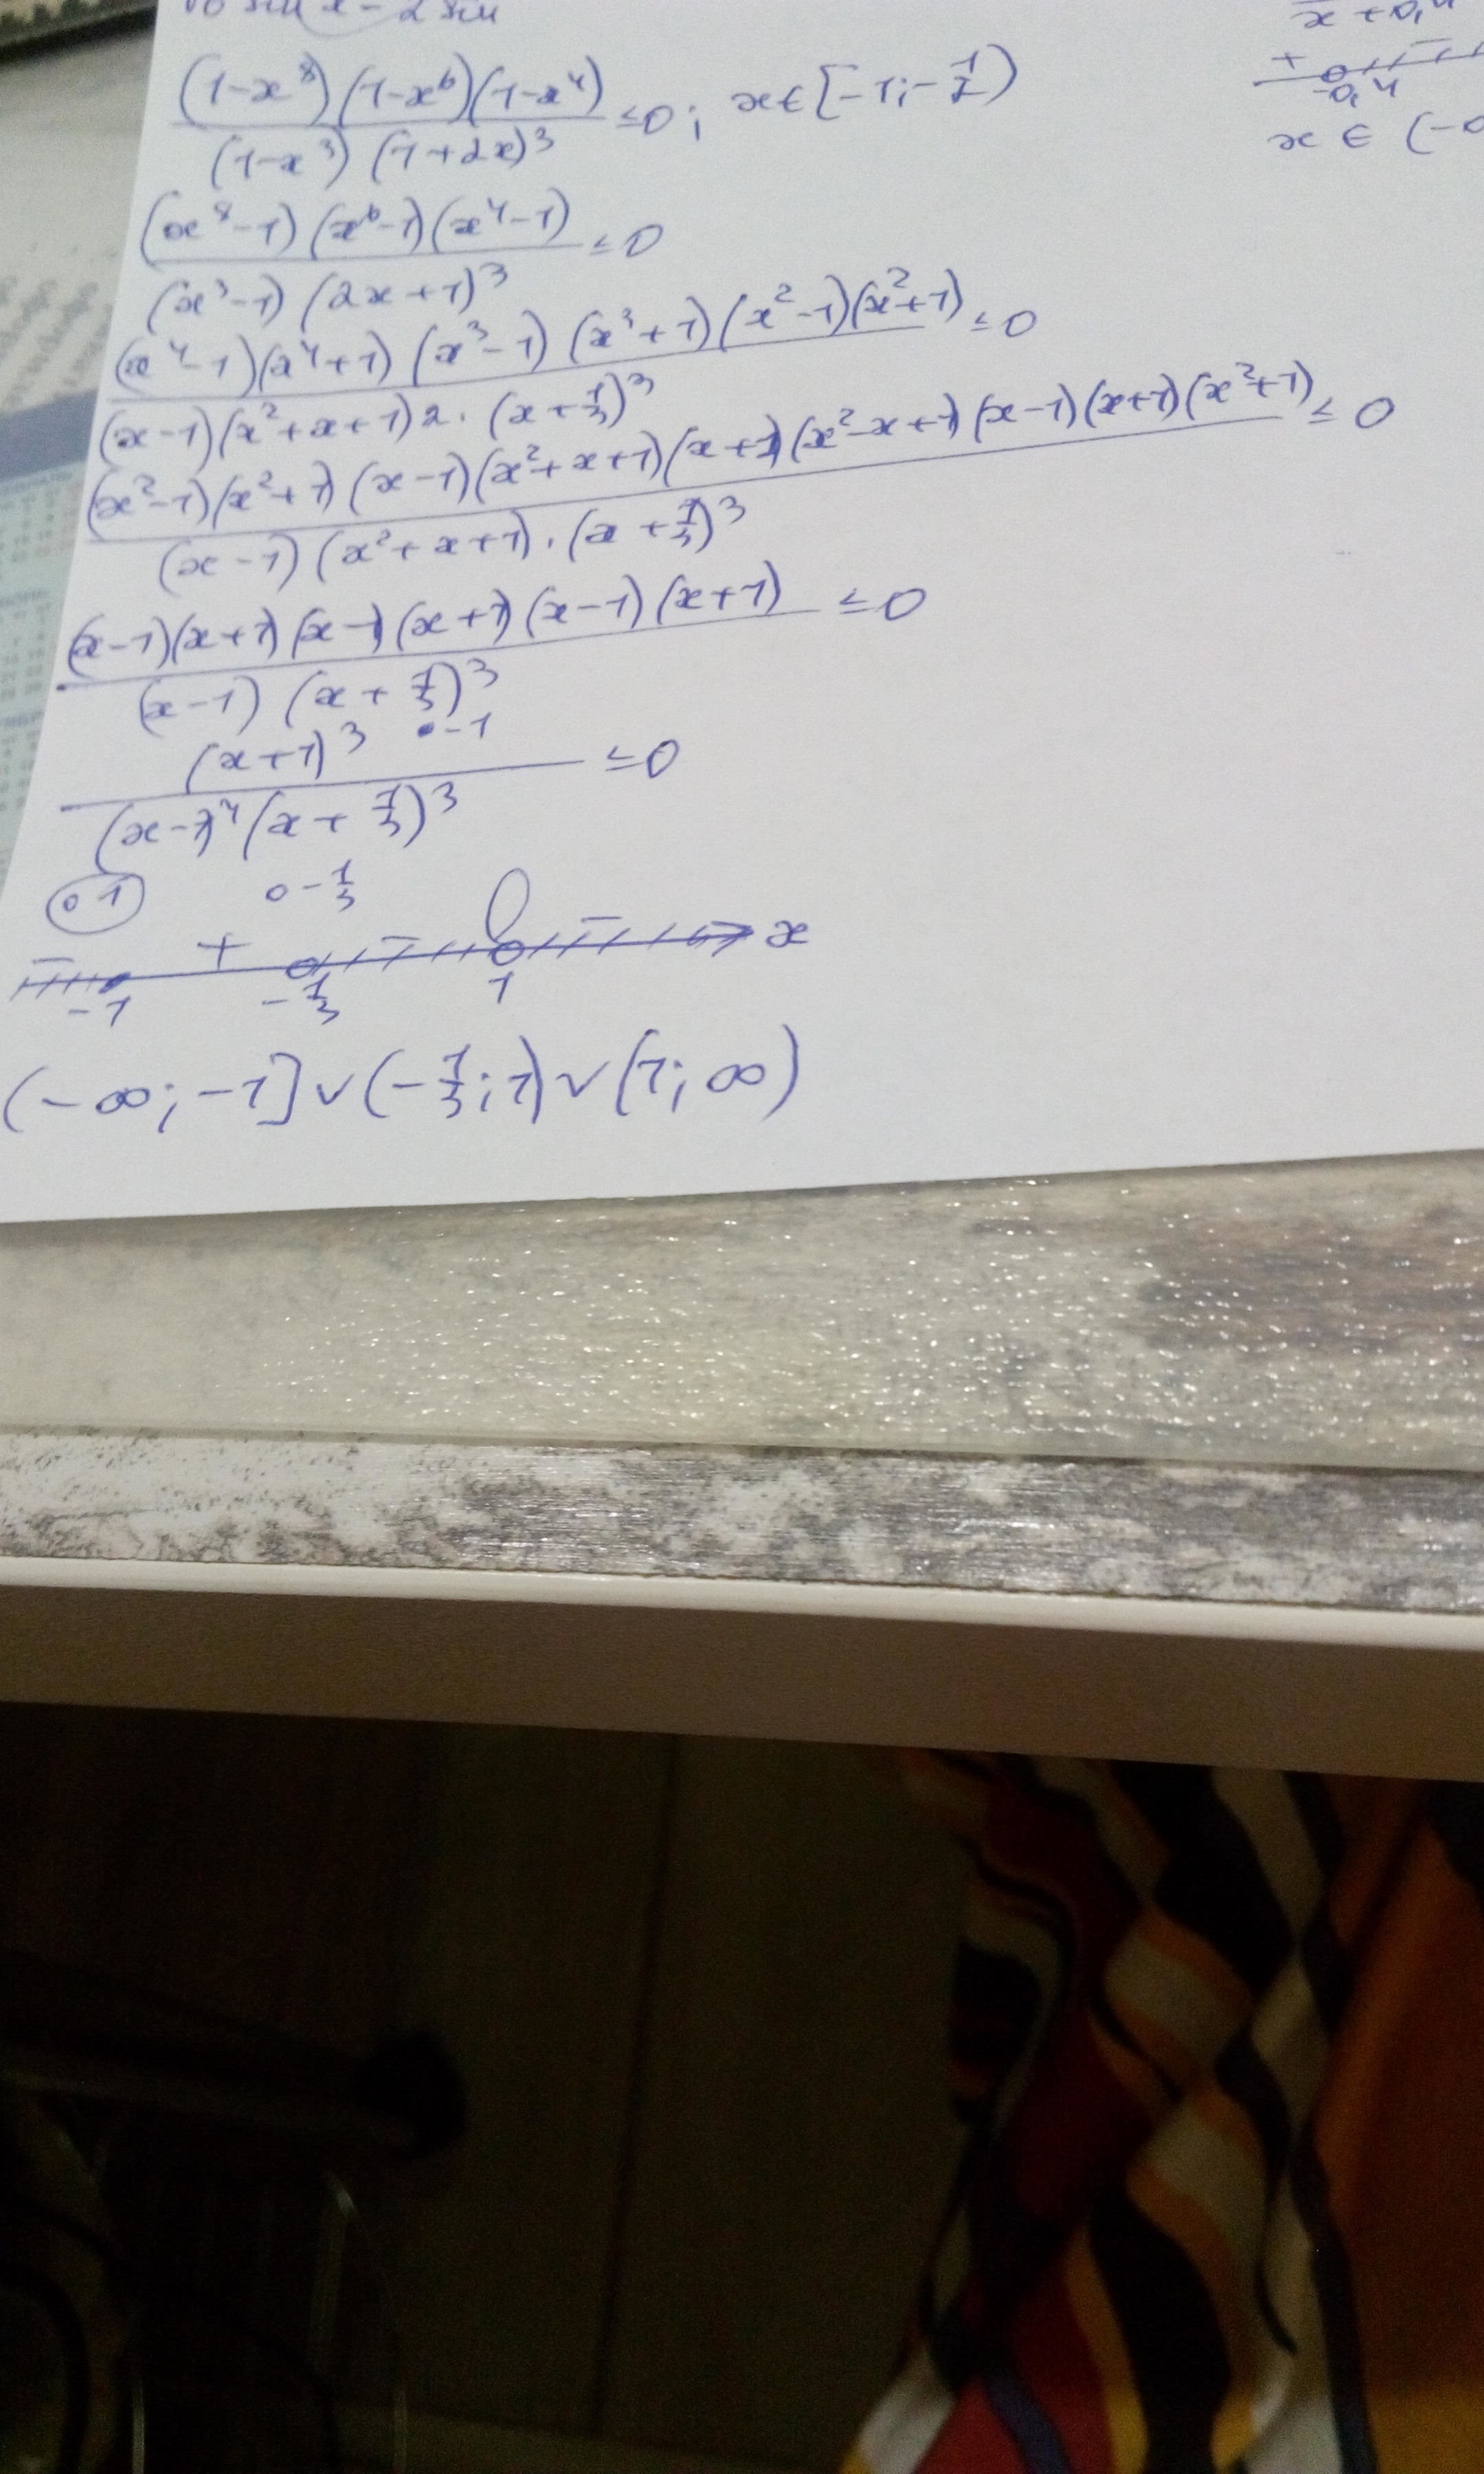 (1-x⁸)(1-x⁶)(1-x⁴) / (1-x³)(1+2x)³ ≤0; x∈[-1;-1/2)
(x⁸-1)(x⁶-1)(x⁴-1) / (x³-1)(2x+1)³ ≤0
(x⁴-1)(x⁴+1)(x³-1)(x³+1)(x²-1)(x²+1) / (x-1)(x²+x+1)2·(x+1/3)³ ≤0
(x²-1)(x²+1)(x-1)(x²+x+1)(x+1)(x²-x+1)(x-1)(x+1)(x²+1) / (x-1)(x²+x+1)·(x+1/3)³ ≤0
(x-1)(x+1)(x-1)(x+1)(x-1)(x+1) / (x-1)(x+1/3)³ ≤0
(x+1)³ •-1 / (x-1)⁴(x+1/3)³ ≤0
∘1 ∘-1/3
- + - - x
-1 -1/3 1
(-∞;-1]∨(-1/3;1)∨(1;∞)
x+0,4
+ -
-0,4
x ∈ (-0